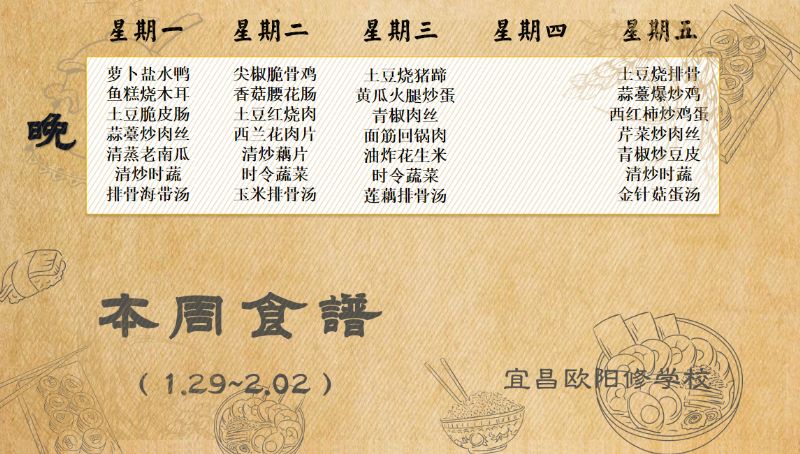 星期一 星期二 星期三 星期四 星期五
晚
萝卜盐水鸭 尖椒脆骨鸡 土豆烧猪蹄 土豆烧排骨
鱼糕烧木耳 香菇腰花肠 黄瓜火腿炒蛋 蒜薹爆炒鸡
土豆脆皮肠 土豆红烧肉 青椒肉丝 西红柿炒鸡蛋
蒜薹炒肉丝 西兰花肉片 面筋回锅肉 芹菜炒肉丝
清蒸老南瓜 清炒藕片 油炸花生米 青椒炒豆皮
清炒时蔬 时令蔬菜 时令蔬菜 清炒时蔬
排骨海带汤 玉米排骨汤 莲藕排骨汤 金针菇蛋汤
本周食谱
(1.29~2.02)
宜昌欧阳修学校